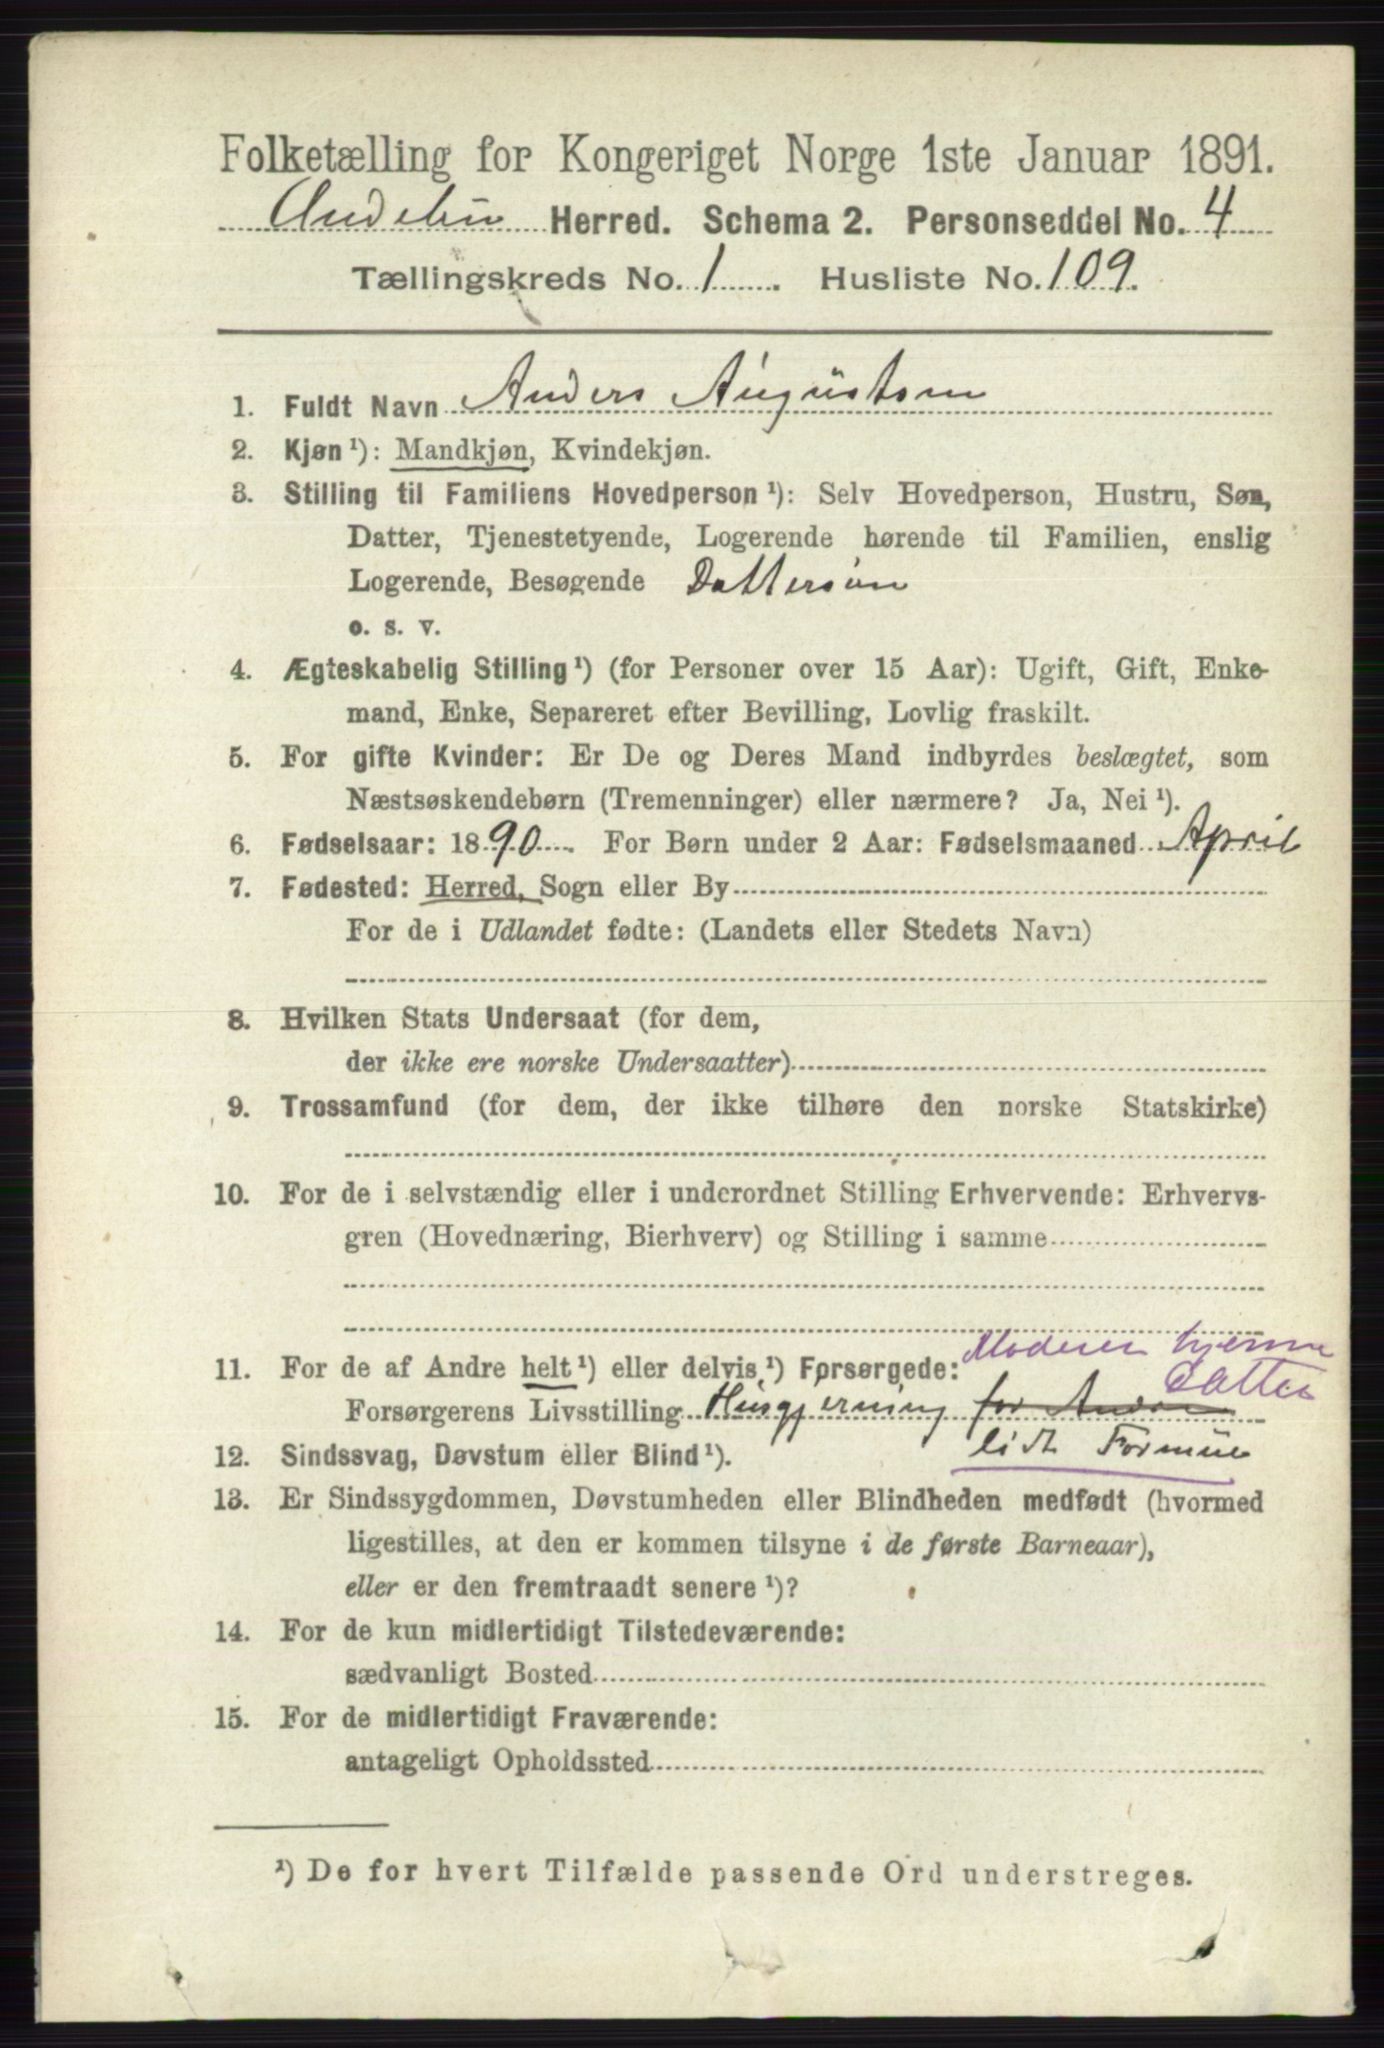 Folketælling for Kongeriget Norge 1ste Januar 1891.
Andebu Herred. Schema 2. Personseddel No. 4
Tællingskreds No. 1. Husliste No. 109.
1. Fuldt Navn Anders Augustsøn
2. Kjøn ¹): Mandkjøn, Kvindekjøn.
3. Stilling til Familiens Hovedperson ¹): Selv Hovedperson, Hustru, Søn,
Datter, Tjenestetyende, Logerende hørende til Familien, enslig
Logerende, Besøgende Dattersøn
o. s. v.
4. Ægteskabelig Stilling ¹) (for Personer over 15 Aar): Ugift, Gift, Enke-
mand, Enke, Separeret efter Bevilling, Lovlig fraskilt.
5. For gifte Kvinder: Er De og Deres Mand indbyrdes beslægtet, som
Næstsøskendebørn (Tremenninger) eller nærmere? Ja, Nei ¹).
6. Fødselsaar: 1890. For Børn under 2 Aar: Fødselsmaaned April
7. Fødested: Herred, Sogn eller By
For de i Udlandet fødte: (Landets eller Stedets Navn)
8. Hvilken Stats Undersaat (for dem,
der ikke ere norske Undersaatter)
9. Trossamfund (for dem, der ikke tilhøre den norske Statskirke)
10. For de i selvstændig eller i underordnet Stilling Erhvervende: Erhvervs-
gren (Hovednæring, Bierhverv) og Stilling i samme
Moderen hjemme
11. For de af Andre helt ¹) eller delvis ¹) Forsørgede: Datter
Forsørgerens Livsstilling Husgjerning for Andre
lidt Formue
12. Sindssvag, Døvstum eller Blind ¹).
13. Er Sindssygdommen, Døvstumheden eller Blindheden medfødt (hvormed
ligestilles, at den er kommen tilsyne i de første Barneaar),
eller er den fremtraadt senere ¹)?
14. For de kun midlertidigt Tilstedeværende:
sædvanligt Bosted
15. For de midlertidigt Fraværende:
antageligt Opholdssted
¹) De for hvert Tilfælde passende Ord understreges.